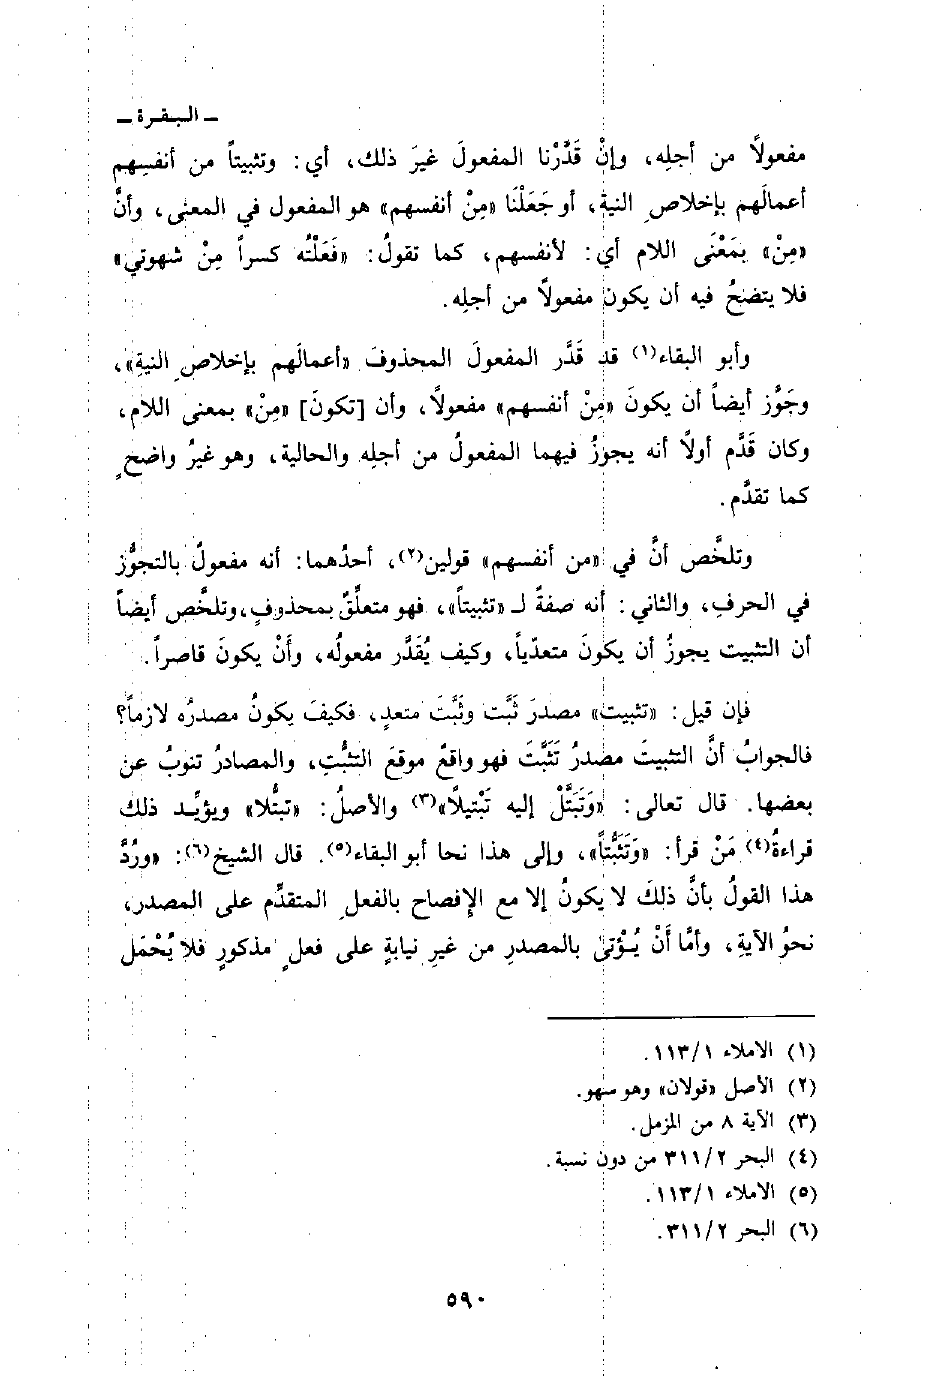 ـ البقرة ـ
مفعولاً من أجلِه، وإنْ قَدَّرْنا المفعولَ غيرَ ذلك، أي: وتثبيتاً من أنفسِهم
أعمالَهم بإخلاصِ النية، أو جَعَلْنَا «مِنْ أنفسهم» هو المفعول في المعنى، وأنَّ
«مِنْ» بمَعْنَى اللام أي: لأنفسهم، كما تقولُ: «فَعَلْتُه كسراً مِنْ شهوتي»
فلا يتضحُ فيه أن يكون مفعولاً من أجلِه.
وأبو البقاء(١) قد قَدَّر المفعولَ المحذوفَ «أعمالَهم بإخلاصِ النيةِ»،
وجَوَّز أيضاً أن يكونَ «مِنْ أنفسهم» مفعولاً، وأن [تكونَ] «مِنْ» بمعنى اللام،
وكان قَدَّم أولاً أنه يجوزُ فيهما المفعولُ من أجلِه والحالية، وهو غيرُ واضحٍ
كما تقدَّم.
وتلخَّص أنَّ في «من أنفسهم» قولين(٢)، أحدُهما: أنه مفعولٌ بالتجوُّز
في الحرفِ، والثاني: أنه صفةٌ لـ «تثبيتاً»، فهو متعلِّقٌ بمحذوفٍ، وتلخَّص أيضاً
أن التثبيت يجوزُ أن يكونَ متعدّياً، وكيف يُقَدَّر مفعولُه، وأَنْ يكونَ قاصراً.
فإن قيل: «تثبيت» مصدرَ ثَبَّت وثَبَّتَ متعدٍ، فكيفَ يكونُ مصدرُه لازماً؟
فالجوابُ أنَّ التثبيتَ مصدرُ تَثَبَّتَ فهو واقعٌ موقعَ التثبُّتِ، والمصادرُ تنوبُ عن
بعضها. قال تعالى: «وَتَبَتَّلْ إليه تَبْتيلاً»(٣) والأصلُ: «تبتُّلا» ويؤيِّد ذلك
قراءةُ(٤) مَنْ قرأ: «وَتَثَبُّتاً»، وإلى هذا نحا أبو البقاء(٥). قال الشيخ(٦): «ورُدَّ
هذا القولُ بأنَّ ذلكَ لا يكونُ إلا مع الإِفصاح بالفعلِ المتقدِّم على المصدر،
نحوُ الآيةِ، وأمَّا أَنْ يُؤْتىٰ بالمصدرِ من غيرِ نيابةٍ على فعلٍ مذكورٍ فلا يُحْمَل
(١) الاملاء ١١٣/١.
(٢) الأصل «قولان» وهو سهو.
(٣) الآية ٨ من المزمل.
(٤) البحر ٣١١/٢ من دون نسبة.
(٥) الاملاء ١١٣/١.
(٦) البحر ٣١١/٢.
٥٩٠